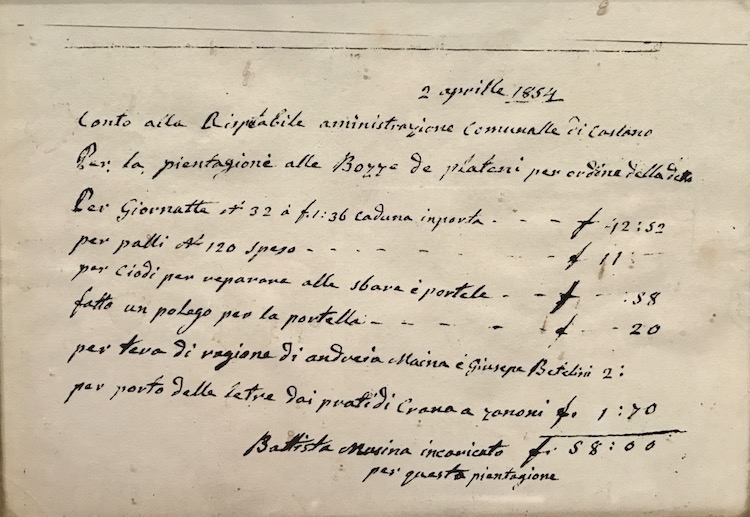 2 aprille 1854
Conto alla Rispetabile aministrazione Comunalle di Caslano
Per la pientagione alle Bozze de plateni per ordine della deto
Per Giornatte N 32 à f. 1:36 caduna inporta - - - f 42:52
per palli N 120 speso - - - - - - - - f 11 --
per Ciodi per reparare alle sbare é portele - - f -- :58
fatto un polego per la portella - - - - - f -- 20
per tera di ragione di andreia Maina é Giusepe Betelini 2:
per porto delle letre dai prati di Crana a zanoni f. 1:70
Battista Masina incaricato f. 58:00
per questa pientagione